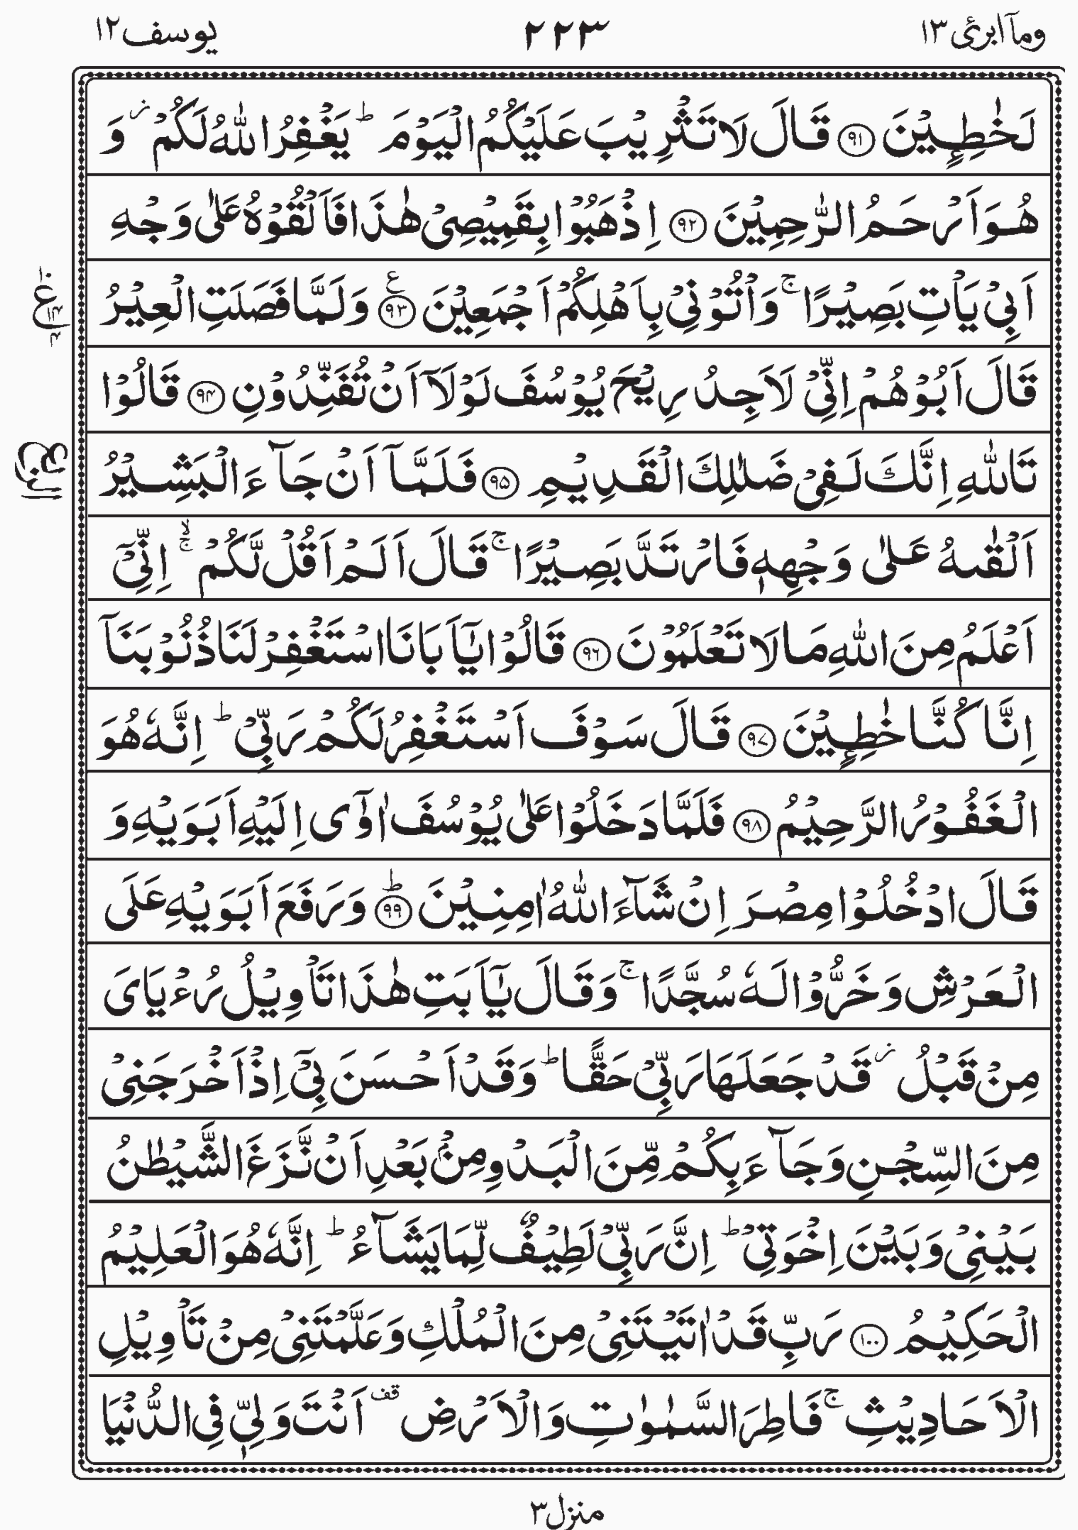 وماۤ ابرئ ١٣
٢٢٣
يوسف ١٢
لَخٰطِـِٕیْنَ ﴿۹۱﴾ قَالَ لَا تَثْرِیْبَ عَلَیْكُمُ الْیَوْمَ ؕ یَغْفِرُ اللّٰهُ لَكُمْ ؗ وَ
هُوَ اَرْحَمُ الرّٰحِمِیْنَ ﴿۹۲﴾ اِذْهَبُوْا بِقَمِیْصِیْ هٰذَا فَاَلْقُوْهُ عَلٰی وَجْهِ
اَبِیْ یَاْتِ بَصِیْرًا ۚ وَاْتُوْنِیْ بِاَهْلِكُمْ اَجْمَعِیْنَ ﴿۹۳﴾ ع وَلَمَّا فَصَلَتِ الْعِیْرُ
قَالَ اَبُوْهُمْ اِنِّیْ لَاَجِدُ رِیْحَ یُوْسُفَ لَوْلَاۤ اَنْ تُفَنِّدُوْنِ ﴿۹۴﴾ قَالُوْا
تَاللّٰهِ اِنَّكَ لَفِیْ ضَلٰلِكَ الْقَدِیْمِ ﴿۹۵﴾ فَلَمَّاۤ اَنْ جَآءَ الْبَشِیْرُ
اَلْقٰىهُ عَلٰی وَجْهِهٖ فَارْتَدَّ بَصِیْرًا ۚ قَالَ اَلَمْ اَقُلْ لَّكُمْ ۚۙ اِنِّیْۤ
اَعْلَمُ مِنَ اللّٰهِ مَا لَا تَعْلَمُوْنَ ﴿۹۶﴾ قَالُوْا یٰۤاَبَانَا اسْتَغْفِرْ لَنَا ذُنُوْبَنَاۤ
اِنَّا كُنَّا خٰطِـِٕیْنَ ﴿۹۷﴾ قَالَ سَوْفَ اَسْتَغْفِرُ لَكُمْ رَبِّیْ ؕ اِنَّهٗ هُوَ
الْغَفُوْرُ الرَّحِیْمُ ﴿۹۸﴾ فَلَمَّا دَخَلُوْا عَلٰی یُوْسُفَ اٰوٰۤی اِلَیْهِ اَبَوَیْهِ وَ
قَالَ ادْخُلُوْا مِصْرَ اِنْ شَآءَ اللّٰهُ اٰمِنِیْنَ ﴿۹۹﴾ؕ وَرَفَعَ اَبَوَیْهِ عَلَی
الْعَرْشِ وَخَرُّوْا لَهٗ سُجَّدًا ۚ وَقَالَ یٰۤاَبَتِ هٰذَا تَاْوِیْلُ رُءْیَایَ
مِنْ قَبْلُ ؗ قَدْ جَعَلَهَا رَبِّیْ حَقًّا ؕ وَقَدْ اَحْسَنَ بِیْۤ اِذْ اَخْرَجَنِیْ
مِنَ السِّجْنِ وَجَآءَ بِكُمْ مِّنَ الْبَدْوِ مِنْۢ بَعْدِ اَنْ نَّزَغَ الشَّیْطٰنُ
بَیْنِیْ وَبَیْنَ اِخْوَتِیْ ؕ اِنَّ رَبِّیْ لَطِیْفٌ لِّمَا یَشَآءُ ؕ اِنَّهٗ هُوَ الْعَلِیْمُ
الْحَكِیْمُ ﴿۱۰۰﴾ رَبِّ قَدْ اٰتَیْتَنِیْ مِنَ الْمُلْكِ وَعَلَّمْتَنِیْ مِنْ تَاْوِیْلِ
الْاَحَادِیْثِ ۚ فَاطِرَ السَّمٰوٰتِ وَالْاَرْضِ قف اَنْتَ وَلِیّٖ فِی الدُّنْیَا
منزل ٣